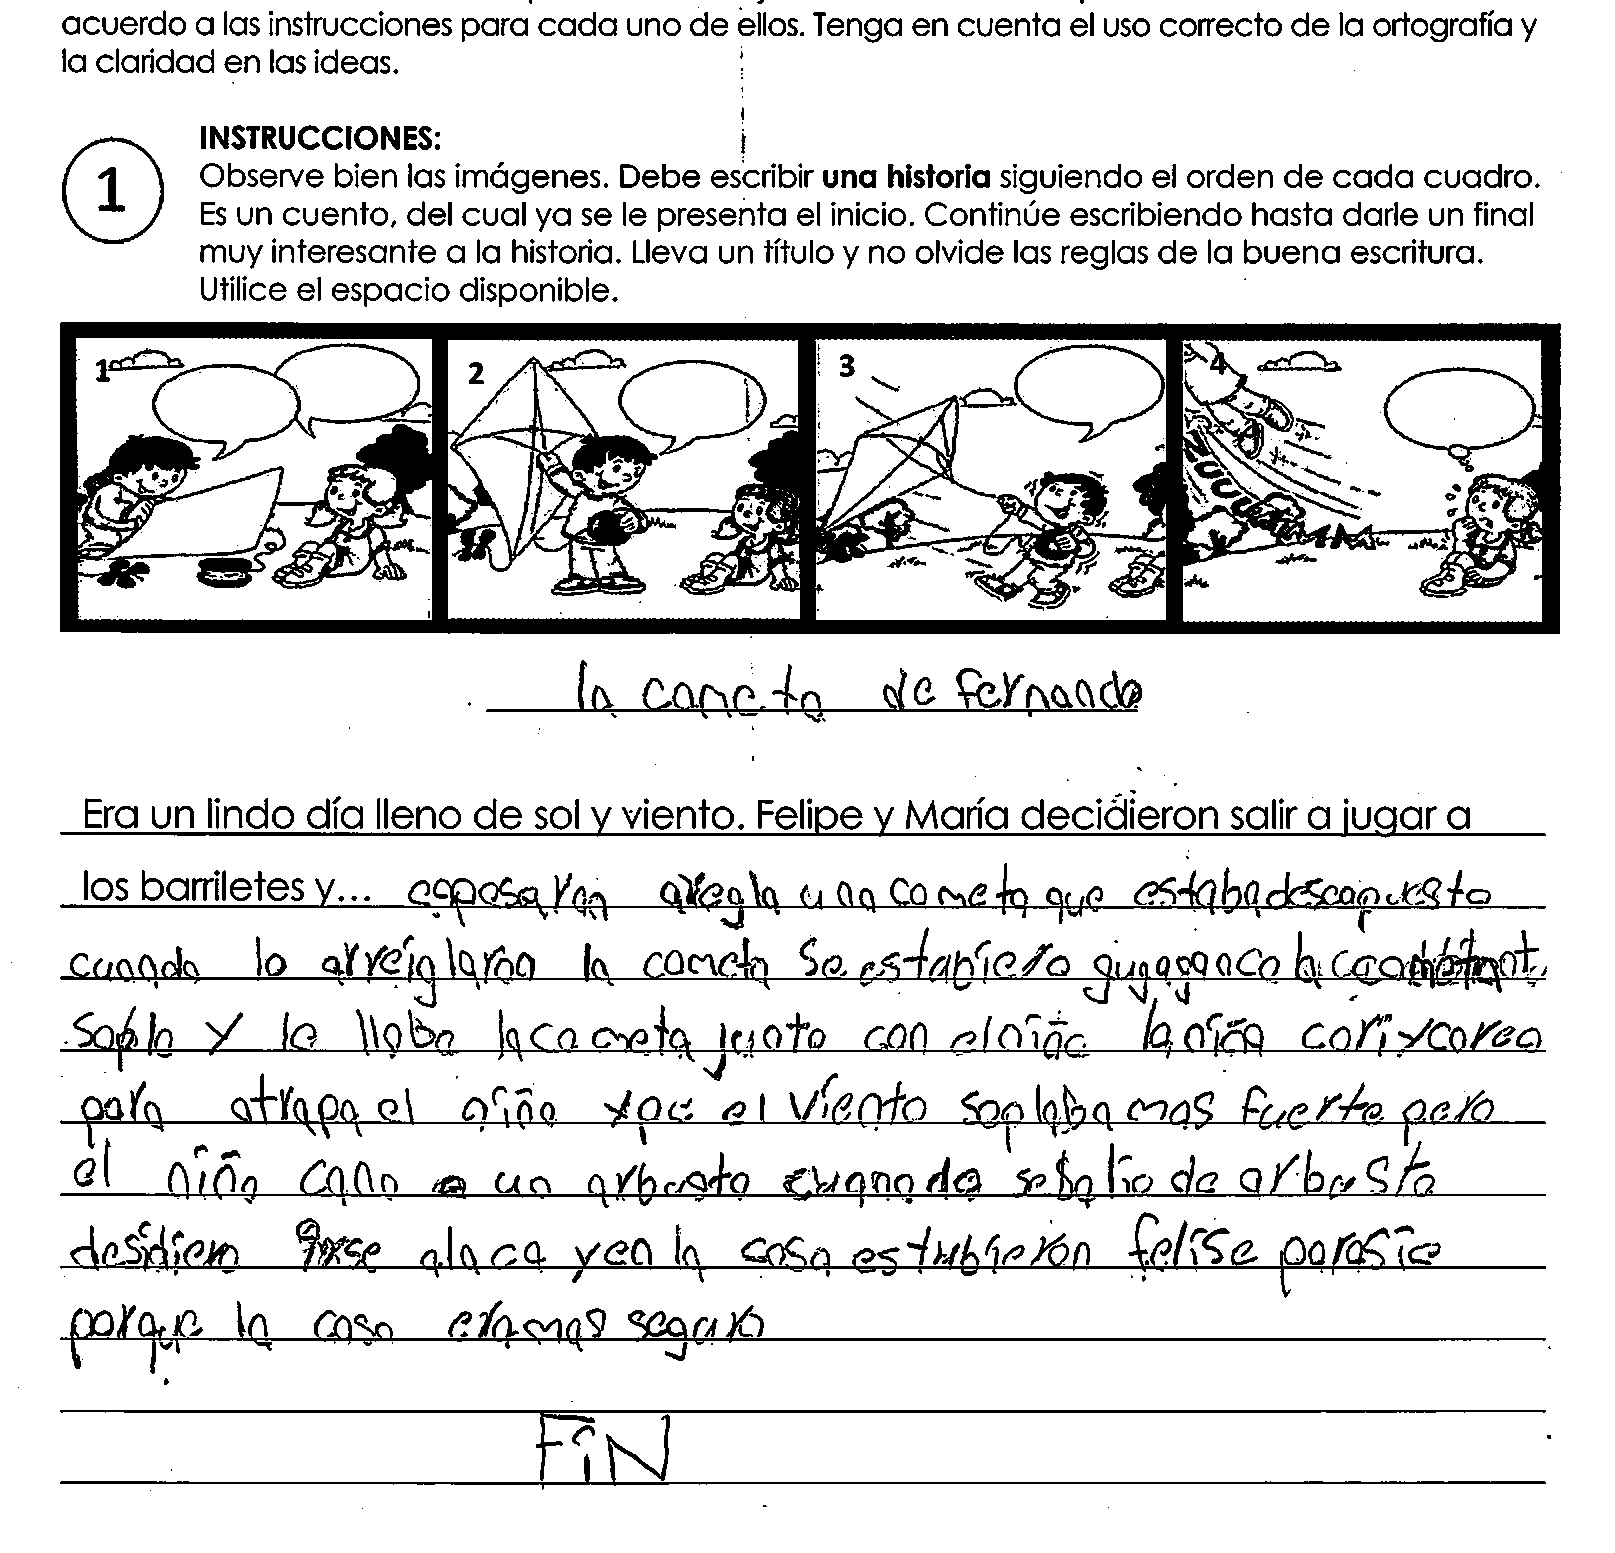 acuerdo a las instrucciones para cada uno de ellos. Tenga en cuenta el uso correcto de la ortografía y
la claridad en las ideas.
1
INSTRUCCIONES:
Observe bien las imágenes. Debe escribir una historia siguiendo el orden de cada cuadro.
Es un cuento, del cual ya se le presenta el inicio. Continúe escribiendo hasta darle un final
muy interesante a la historia. Lleva un título y no olvide las reglas de la buena escritura.
Utilice el espacio disponible.
1 2 3 4
la cometa de fernando
Era un lindo día lleno de sol y viento. Felipe y María decidieron salir a jugar a
los barriletes y... aregla una cometa que estaba
cuando lo arreiglaron la cometa se
soplo y le lloba la cometa junto con el niño la niña cori y coreo
para atrapa el niño el viento soplaba mas fuerte pero
el niño un arbusto se salio de arbusto
desidiem a la ca y en la casa estubieron felise
porque la casa era mas seguro
FiN